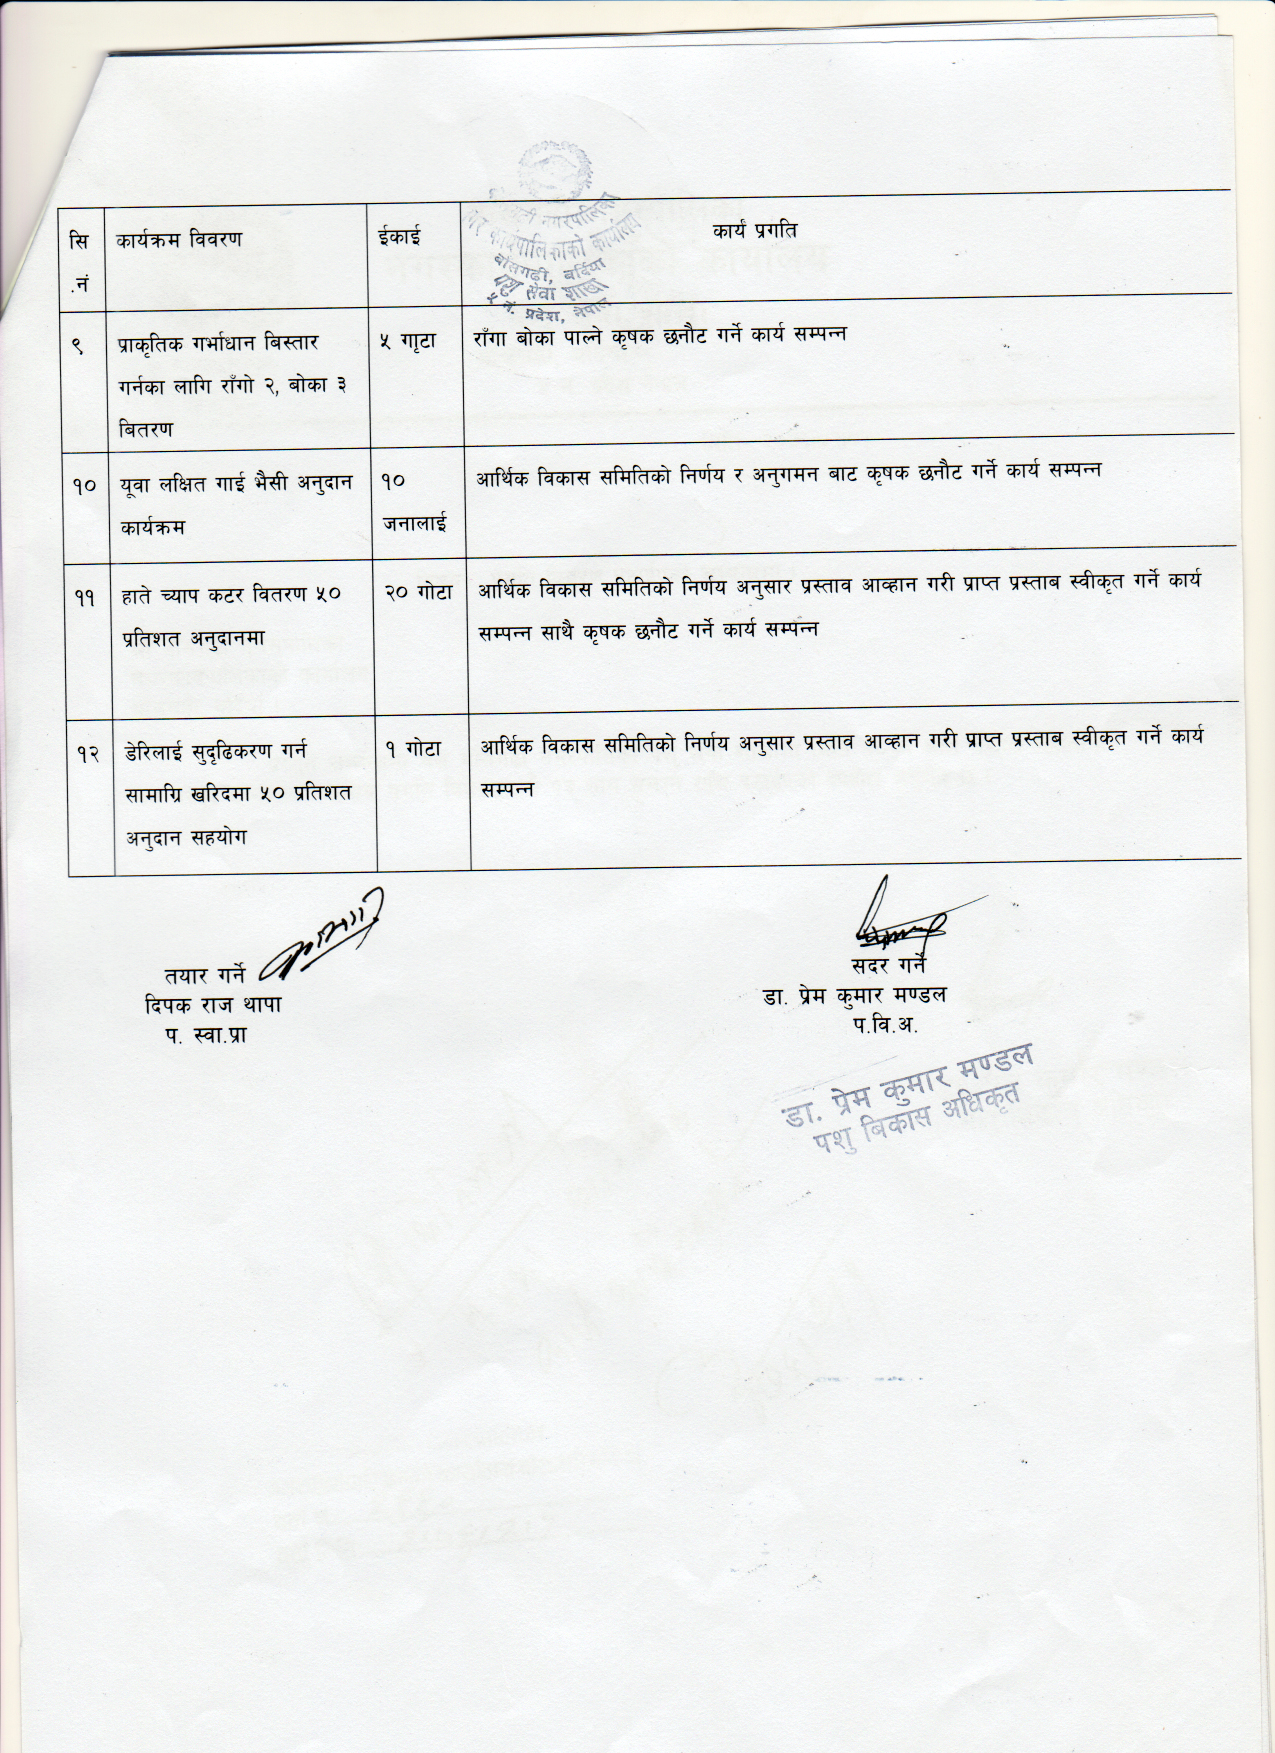 नगरपालिका
नगर कार्यपालिकाको कार्यालय
बाँसगढी, बर्दिया
पशु सेवा शाखा
५ नं. प्रदेश, नेपाल
सि .नं कार्यक्रम विवरण ईकाई कार्य प्रगति
९ प्राकृतिक गर्भाधान बिस्तार ५ गाृटा राँगा बोका पाल्ने कृषक छनौट गर्ने कार्य सम्पन्न
गर्नका लागि राँगो २, बोका ३
बितरण
१० यूवा लक्षित गाई भैसी अनुदान १० आर्थिक विकास समितिको निर्णय र अनुगमन बाट कृषक छनौट गर्ने कार्य सम्पन्न
कार्यक्रम जनालाई
११ हाते च्याप कटर वितरण ५० २० गोटा आर्थिक विकास समितिको निर्णय अनुसार प्रस्ताव आव्हान गरी प्राप्त प्रस्ताब स्वीकृत गर्ने कार्य
प्रतिशत अनुदानमा सम्पन्न साथै कृषक छनौट गर्ने कार्य सम्पन्न
१२ डेरिलाई सुदृढिकरण गर्न १ गोटा आर्थिक विकास समितिको निर्णय अनुसार प्रस्ताव आव्हान गरी प्राप्त प्रस्ताब स्वीकृत गर्ने कार्य
सामाग्रि खरिदमा ५० प्रतिशत सम्पन्न
अनुदान सहयोग
तयार गर्ने
दिपक राज थापा
प. स्वा.प्रा
सदर गर्ने
डा. प्रेम कुमार मण्डल
प.वि.अ.
डा. प्रेम कुमार मण्डल
पशु बिकास अधिकृत